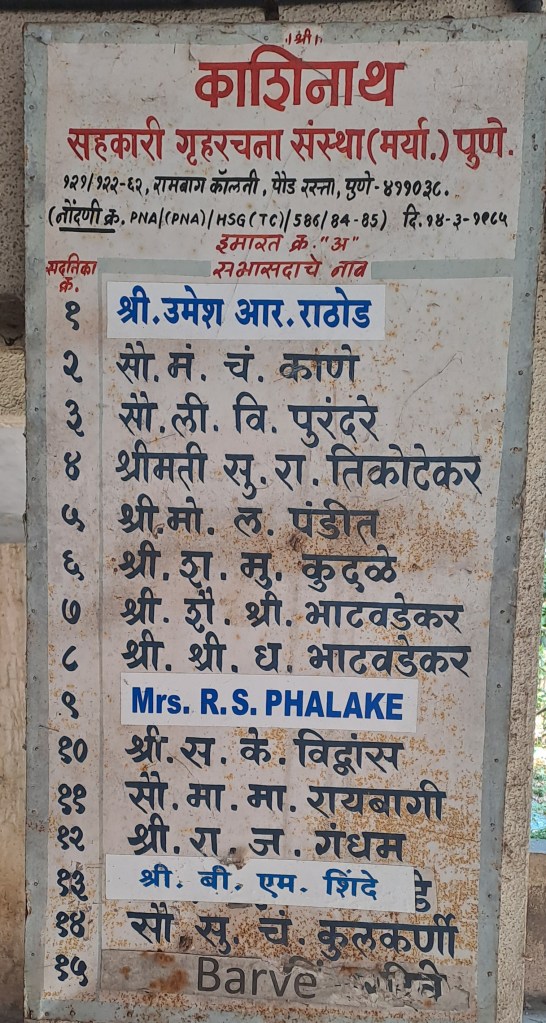 ॥श्री॥
काशिनाथ
सहकारी गृहरचना संस्था(मर्या.) पुणे.
१२१/१२२-६२, रामबाग कॉलनी, पौड रस्ता, पुणे-४११०३८.
(नोंदणी क्र. PNA/(PNA)/HSG(TC)/586/84-85) दि.१४-३-१९८५
इमारत क्र."अ"
सदनिका क्र. सभासदाचे नाव
१ श्री.उमेश आर.राठोड
२ सौ.मं. चं. काणे
३ सौ.ली. वि. पुरंदरे
४ श्रीमती सु. रा. तिकोटेकर
५ श्री.मो. ल. पंडीत
६ श्री. श. मु. कुदळे
७ श्री. शै. श्री. भाटवडेकर
८ श्री. श्री. ध. भाटवडेकर
९ Mrs. R.S. PHALAKE
१० श्री. स. के. विद्वांस
११ सौ. मा. मा. रायबागी
१२ श्री. रा. ज. गंधम
१३ श्री. बी. एम. शिंदे
१४ सौ सु. चं. कुलकर्णी
१५ Barve